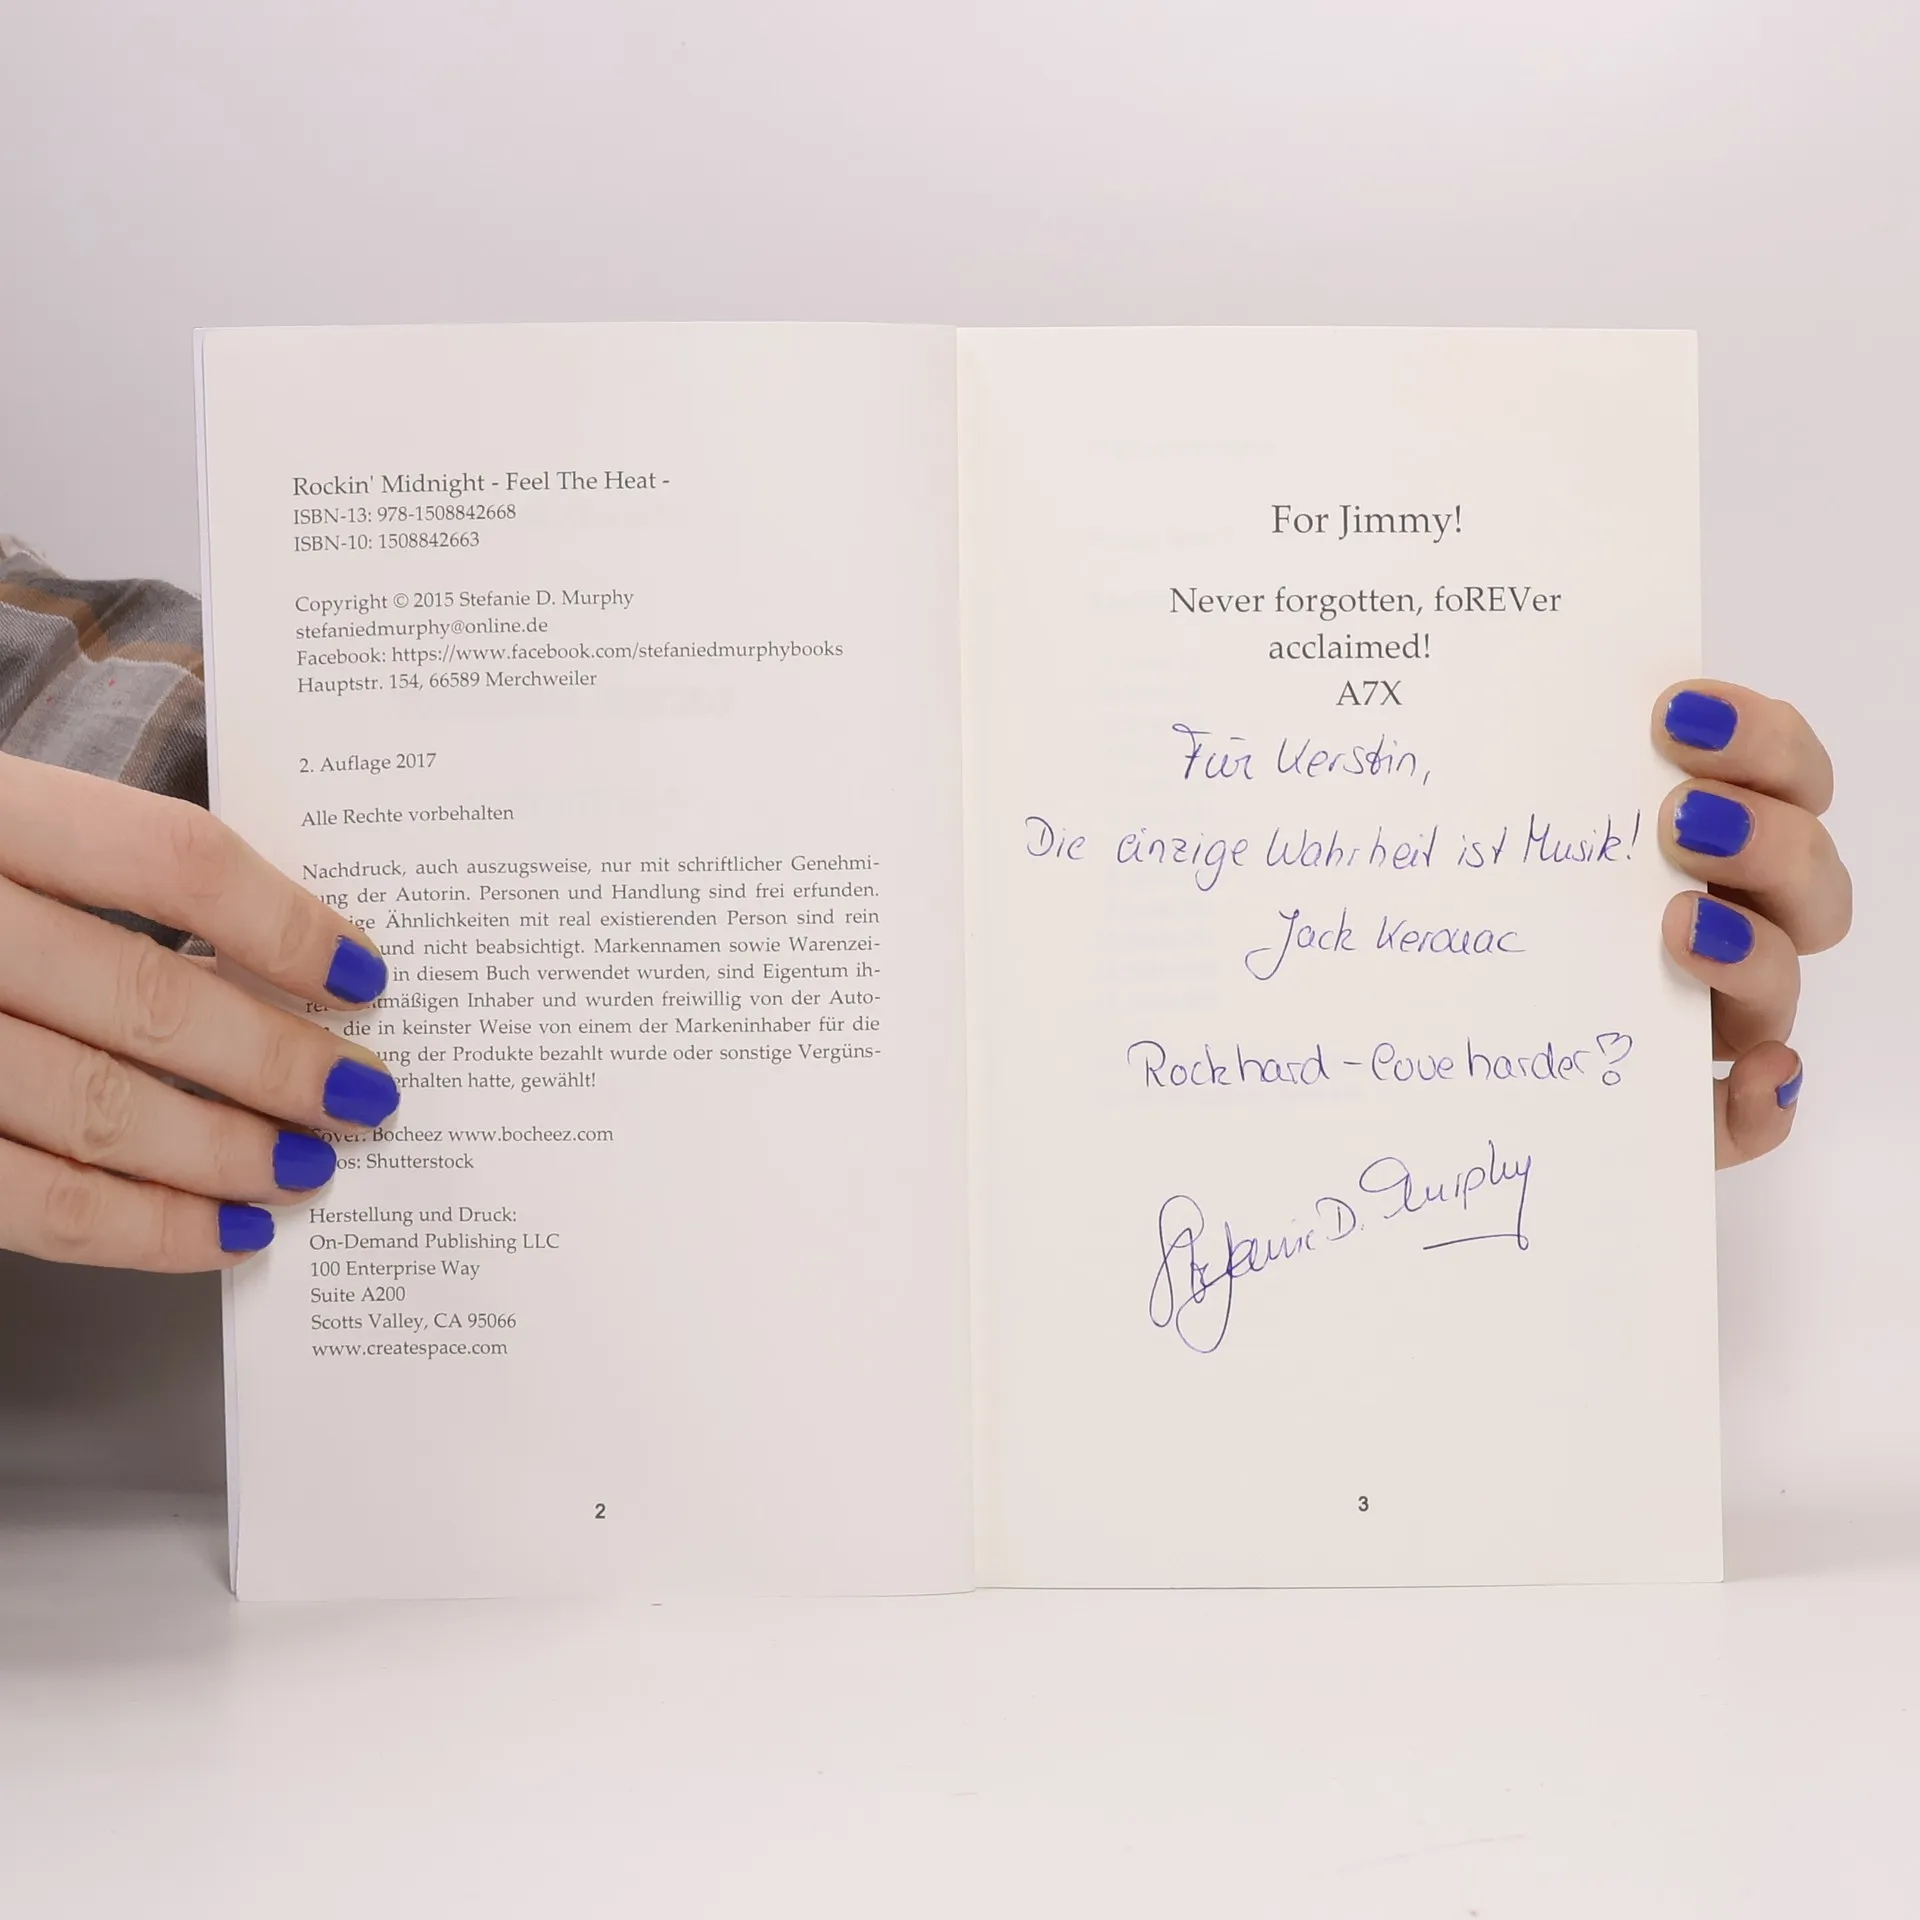 Rockin' Midnight - Feel The Heat -
ISBN-13: 978-1508842668
ISBN-10: 1508842663
Copyright © 2015 Stefanie D. Murphy
stefaniedmurphy@online.de
Facebook: https://www.facebook.com/stefaniedmurphybooks
Hauptstr. 154, 66589 Merchweiler
2. Auflage 2017
Alle Rechte vorbehalten
Nachdruck, auch auszugsweise, nur mit schriftlicher Genehmi-
ung der Autorin. Personen und Handlung sind frei erfunden.
ige Ähnlichkeiten mit real existierenden Person sind rein
und nicht beabsichtigt. Markennamen sowie Warenzei-
in diesem Buch verwendet wurden, sind Eigentum ih-
tmäßigen Inhaber und wurden freiwillig von der Auto-
die in keinster Weise von einem der Markeninhaber für die
ung der Produkte bezahlt wurde oder sonstige Vergüns-
erhalten hatte, gewählt!
Cover: Bocheez www.bocheez.com
os: Shutterstock
Herstellung und Druck:
On-Demand Publishing LLC
100 Enterprise Way
Suite A200
Scotts Valley, CA 95066
www.createspace.com
2
For Jimmy!
Never forgotten, foREVer
acclaimed!
A7X
Für Kerstin,
Die einzige Wahrheit ist Musik!
Jack Kerouac
Rock hard - love harder
Stefanie D. Murphy
3